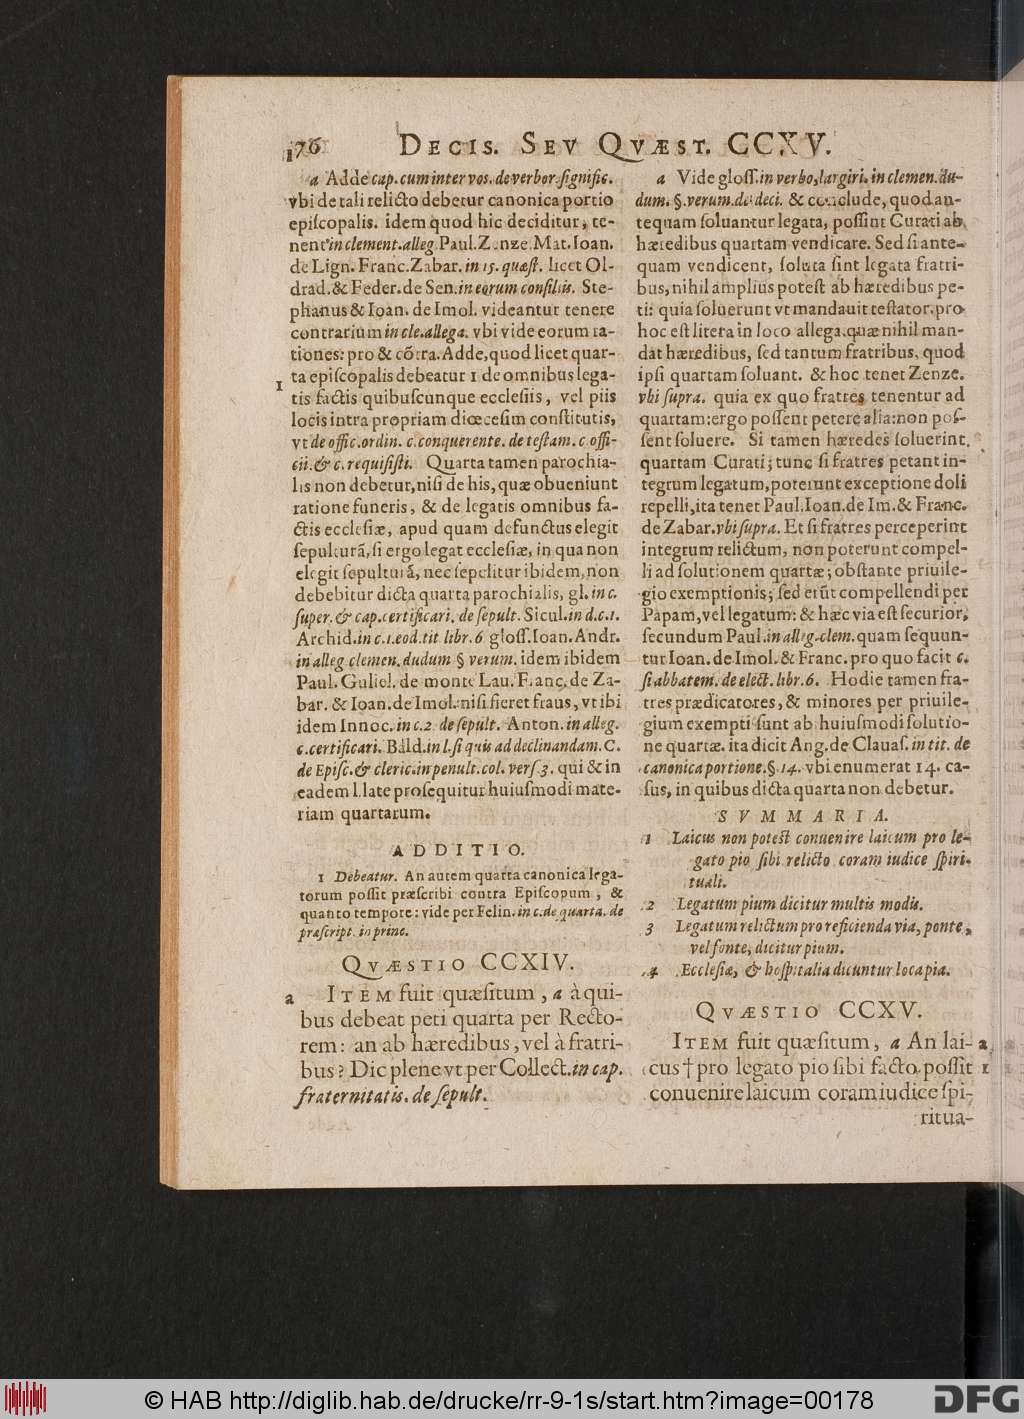 176 DECIS. SEV QVÆST. CCXV.
a Adde cap. cum inter vos. de verbor. signific.
vbi de tali relicto debetur canonica portio
episcopalis. idem quod hic deciditur, te-
nent in clement. alleg. Paul. Zenze. Mat. Ioan.
de Lign. Franc. Zabar. in 15. quæst. licet Ol-
drad. & Feder. de Sen. in eorum consiliis. Ste-
phanus & Ioan. de Imol. videantur tenere
contrarium in cle. allega. vbi vide eorum ra-
tiones: pro & cõtra. Adde, quod licet quar-
1 ta episcopalis debeatur 1 de omnibus lega-
tis factis quibuscunque ecclesiis, vel piis
locis intra propriam diœcesim constitutis,
vt de offic. ordin. c. conquerente. de testam. c. offi-
cii. & c. requisisti. Quarta tamen parochia-
lis non debetur, nisi de his, quæ obueniunt
ratione funeris, & de legatis omnibus fa-
ctis ecclesiæ, apud quam defunctus elegit
sepulturã, si ergo legat ecclesiæ, in qua non
elegit sepulturã, nec sepelitur ibidem, non
debebitur dicta quarta parochialis, gl. in c.
super. & cap. certificari. de sepult. Sicul. in d.c.1.
Archid. in c.1. eod. tit. libr. 6 gloss. Ioan. Andr.
in alleg clemen. dudum § verum. idem ibidem
Paul. Guliel. de monte Lau. Franc. de Za-
bar. & Ioan. de Imol. nisi fieret fraus, vt ibi
idem Innoc. in c.2. de sepult. Anton. in alleg.
c. certificari. Bald. in l. si quis ad declinandam. C.
de Episc. & cleric. in penult. col. vers. 3. qui & in
eadem l. late prosequitur huiusmodi mate-
riam quartarum.
ADDITIO.
1 Debeatur. An autem quarta canonica lega-
torum possit præscribi contra Episcopum, &
quanto tempore: vide per Felin. in c. de quarta. de
præscript. in princ.
QVÆSTIO CCXIV.
a ITEM fuit quæsitum, a à qui-
bus debeat peti quarta per Recto-
rem: an ab hæredibus, vel à fratri-
bus? Dic plene vt per Collect. in cap.
fraternitatis. de sepult.
a Vide gloss. in verbo, largiri. in clemen. du-
dum. §. verum. de deci. & conclude, quod an-
tequam soluantur legata, possint Curati ab
hæredibus quartam vendicare. Sed si ante-
quam vendicent, soluta sint legata fratri-
bus, nihil amplius potest ab hæredibus pe-
ti: quia soluerunt vt mandauit testator. pro
hoc est litera in loco allega. quæ nihil man-
dat hæredibus, sed tantum fratribus, quod
ipsi quartam soluant. & hoc tenet Zenze.
vbi supra. quia ex quo fratres tenentur ad
quartam: ergo possent petere alia: non pos-
sent soluere. Si tamen hæredes soluerint
quartam Curati; tunc si fratres petant in-
tegrum legatum, poterunt exceptione doli
repelli, ita tenet Paul. Ioan. de Im. & Franc.
de Zabar. vbi supra. Et si fratres perceperint
integrum relictum, non poterunt compel-
li ad solutionem quartæ; obstante priuile-
gio exemptionis; sed erũt compellendi per
Papam, vel legatum: & hæc via est securior,
secundum Paul. in alleg. clem. quam sequun-
tur Ioan. de Imol. & Franc. pro quo facit c.
si abbatem. de elect. libr. 6. Hodie tamen fra-
tres prædicatores, & minores per priuile-
gium exempti sunt ab huiusmodi solutio-
ne quartæ. ita dicit Ang. de Clauas. in tit. de
canonica portione. §. 14. vbi enumerat 14. ca-
sus, in quibus dicta quarta non debetur.
SVMMARIA.
1 Laicus non potest conuenire laicum pro le-
gato pio sibi relicto coram iudice spiri-
tuali.
2 Legatum pium dicitur multis modis.
3 Legatum relictum pro reficienda via, ponte,
vel fonte, dicitur pium.
4 Ecclesiæ, & hospitalia dicuntur loca pia.
QVÆSTIO CCXV.
ITEM fuit quæsitum, a An lai- a
cus † pro legato pio sibi facto possit 1
conuenire laicum coram iudice spi-
ritua-
© HAB http://diglib.hab.de/drucke/rr-9-1s/start.htm?image=00178
DFG